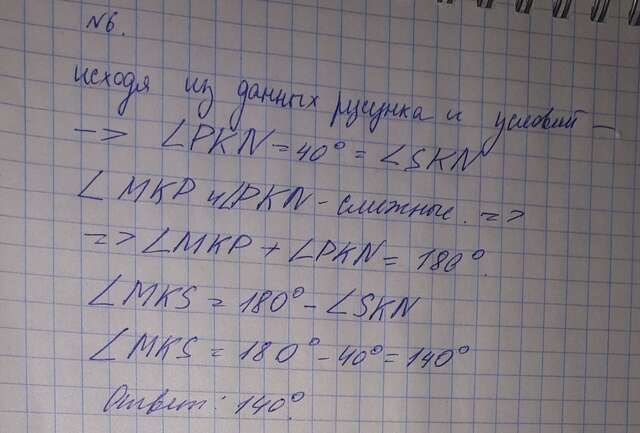 N6.
исходя из данных рисунка и условий —
—> ∠PKN = 40° = ∠SKN
∠MKP и ∠PKN - смежные. =>
=> ∠MKP + ∠PKN = 180°.
∠MKS = 180° - ∠SKN
∠MKS = 180° - 40° = 140°
Ответ: 140°.